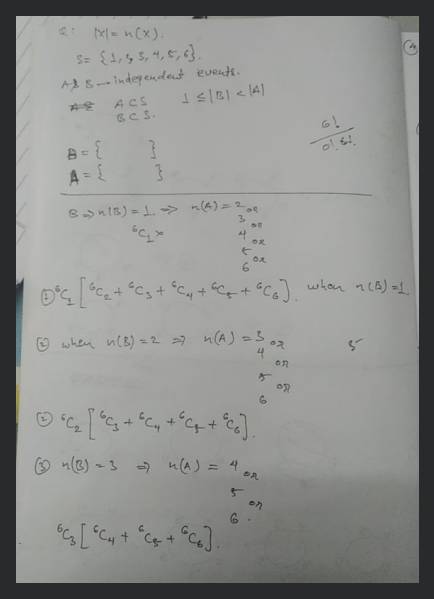 Q: |X| = n(X).
S = {1, 2, 3, 4, 5, 6}.
A & B → independent events.
A ⊂ S 1 ≤ |B| < |A|
B ⊂ S.
6!
0! 6!
B = { }
A = { }
B ⇒ n(B) = 1 ⇒ n(A) = 2 or
3 or
⁶C₁ × 4 or
5 or
6
① ⁶C₁ [ ⁶C₂ + ⁶C₃ + ⁶C₄ + ⁶C₅ + ⁶C₆ ]. when n(B) = 1
② when n(B) = 2 ⇒ n(A) = 3 or
4 or
5 or
6
5
② ⁶C₂ [ ⁶C₃ + ⁶C₄ + ⁶C₅ + ⁶C₆ ].
③ n(B) = 3 ⇒ n(A) = 4 or
5 or
6.
⁶C₃ [ ⁶C₄ + ⁶C₅ + ⁶C₆ ].